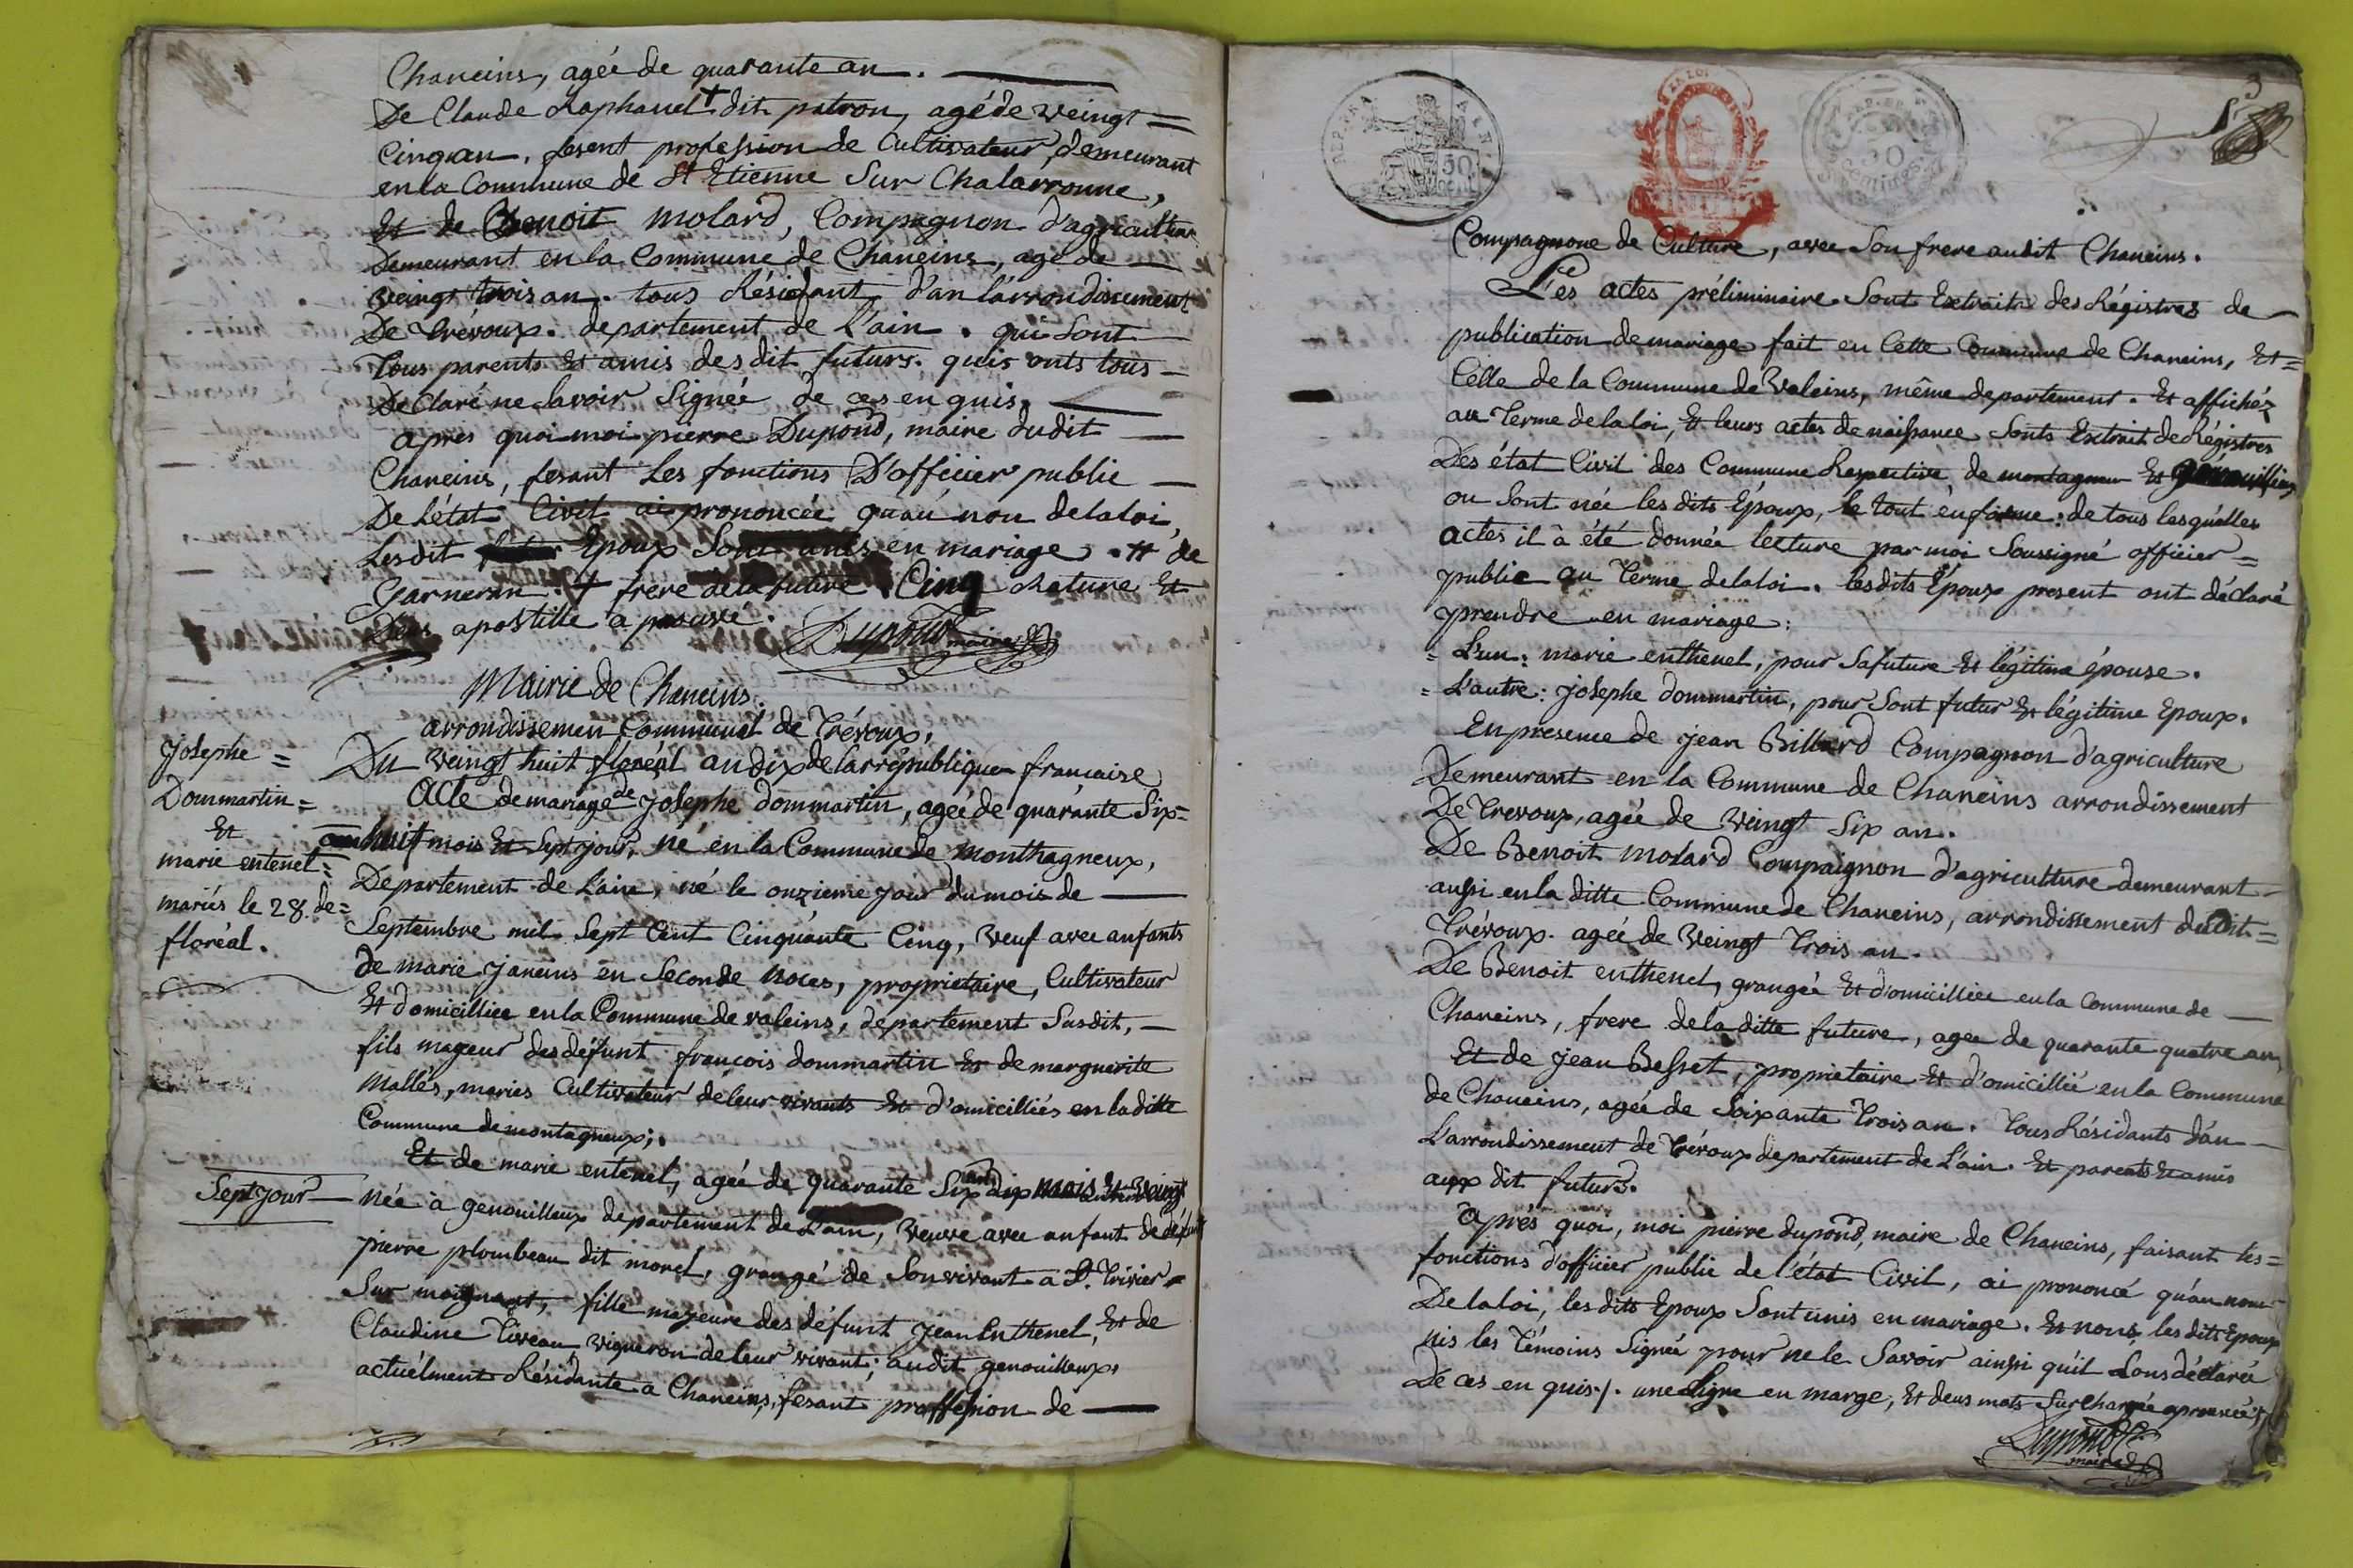 Chaneins, ageé de quarante an.
De Claude Raphanel † dit patron, agé de veingt =
Cinq an, fesent profession de Cultivateur, demeurant
en la Commune de St Etienne Sur Chalaronne,
Et de Benoit molard, Compagnon d'agriculture
Demeurant en la Commune de Chaneins, agé de
veingt trois an. tous Résidant d'an l'arrondissement
De Trévoux. departement de L'ain. qui Sont
Tous parents Et amis des dit futurs. quis onts tous
Declaré ne Savoir Signée de ces en quis.
après quoi moi pierre Dupond, maire dudit
Chaneins, fesant Les fonctions D'officier public
De L'état Civil ai prononcée qu'au non de la loi,
Les dit Epoux Sont unis en mariage. # de
Garneran. † frere de la future. Cinq Rature Et
Deus apostille a prouvé.
Dupond maire
Mairie de Chaneins.
arrondissemen Communal de Trévoux.
Josephe =
Dommartin =
Et
marie entenel =
mariés le 28. de =
floréal.
Du veingt huit floréal an dix de la république francaise
Acte de mariage de Josephe dommartin, ageé de quarante Six =
an huit mois Et Sept jour, né en la Commune de monthagneux,
Departement de L'ain, né le onzieme jour du mois de
Septembre mil Sept Cent Cinquante Cinq, veuf avec anfants
de marie janeins en Seconde noces, proprietaire, Cultivateur
Et domicilliee en la Commune de valeins, departement Susdit,
fils mageur des défunt francois dommartin Et de marguerite
Mallés, maries Cultivateur de leur vivants Et d'omicilliés en la ditte
Commune de montagneux;.
Et de marie entenel, ageé de quarante Six an dix mois Et veingt
Sept jour
née a genouilleux departement de L'ain, veuve avec anfant de défunt
pierre plombeau dit morel, grangé de Son vivant a St Trivier =
Sur moignant, fille mageure des défunt Jean Enthenel, Et de
Claudine Tiveau, vigneron de leur vivant; audit genouilleux,
actuélment Résidante a Chaneins, fesant proffession de
3
Compagnone de Culture, avec Son frere audit Chaneins.
Les actes préliminaire Sont Extraits des Régistres de
publication de mariage fait en Cette Commune de Chaneins, Et =
Celle de la Commune de Valeins, même departement. Et affichéz
au Terme de la loi, Et leurs actes de naissance Sonts Extrait de Régistres
Des état Civil des Commune Respective de montagneux Et genouilleux
ou Sont née les dits Epoux, le tout én forme: de tous lesquélles
actes il à été donnée lecture par moi Soussigné officier =
public au Terme de la loi. les dits Epoux present ont déclaré
prendre en mariage:
= L'un: marie enthenel, pour Sa future Et légitime épouse.
= L'autre: josephe dommartin, pour Sont futur Et légitime Epoux.
En presence de jean Billard Compagnon d'agriculture
Demeurant en la Commune de Chaneins arrondissement
De Trevoux, ageé de veingt Six an.
De Benoit molard Compaignon d'agriculture demeurant
aussi en la ditte Commune de Chaneins, arrondissement dudit =
Trévoux. ageé de veingt Trois an.
De Benoit enthenel, grangée Et d'omicilliée en la commune de
Chaneins, frere de la ditte future, agee de quarante quatre an,
Et de jean Besset, proprietaire Et d'omicilliée en la Commune
de Chaneins, ageé de Soixante Trois an. Tous Résidants d'an
L'arrondissement de Trévoux departement de L'ain. Et parents Et amis
aux dit futurs.
après quoi, moi pierre dupond, maire de Chaneins, faisant les =
fonctions d'officier public de l'état Civil, ai prononcé qu'au nom
De la loi, les dits Epoux Sont unis en mariage. Et nons, les dits Epoux
nis les Témoins Signée pour ne le Savoir ainssi quil Lons déclarée
De ces en quis /. une Ligne en marge, Et deus mots Surchargée aprouvéés
Dupond
maire